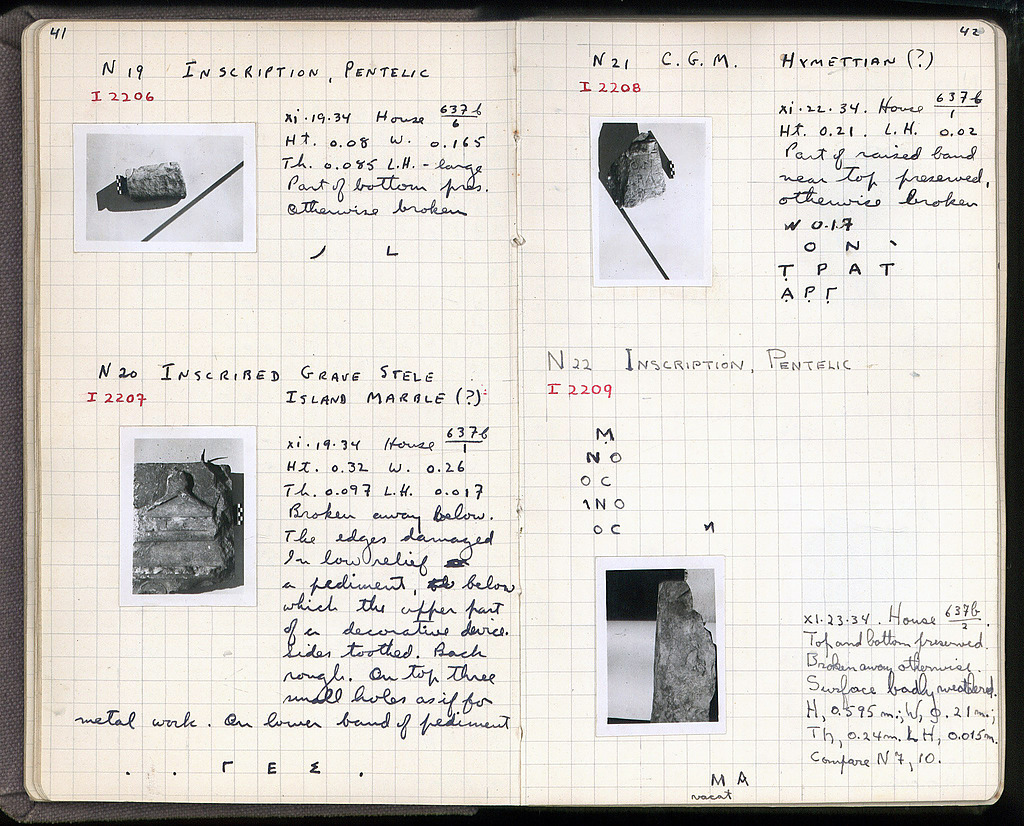 41
N 19 INSCRIPTION, PENTELIC
I 2206
xi·19·34 House 637b/6
Ht. 0.08 W. 0.165
Th. 0.085 L.H. - large
Part of bottom pres.
otherwise broken
L
N 20 INSCRIBED GRAVE STELE
I 2207 ISLAND MARBLE (?)
xi·19·34 House 637b/1
Ht. 0.32 W. 0.26
Th. 0.097 L.H. 0.017
Broken away below.
The edges damaged
In low relief
a pediment, below
which the upper part
of a decorative device.
Sides toothed. Back
rough. On top three
small holes as if for
metal work. On lower band of pediment
. . Γ Ε Σ .
42
N 21 C.G.M. HYMETTIAN (?)
I 2208
xi·22·34. House 637b/1
Ht. 0.21. L.H. 0.02
Part of raised band
near top preserved,
otherwise broken
W 0.17
Ο Ν `
Τ̣ Ρ Α Τ
Α̣ Ρ̣ Γ̣
N 22 INSCRIPTION, PENTELIC
I 2209
Μ̣
Ν Ο
Ο C
ΙΝΟ
Ο C И
XI·23·34. House 637b/2.
Top and bottom preserved.
Broken away otherwise.
Surface badly weathered.
H, 0.595 m.; W, 0.21 m.;
Th, 0.24 m. L H, 0.015 m.
Compare N 7, 10.
Μ Α
vacat